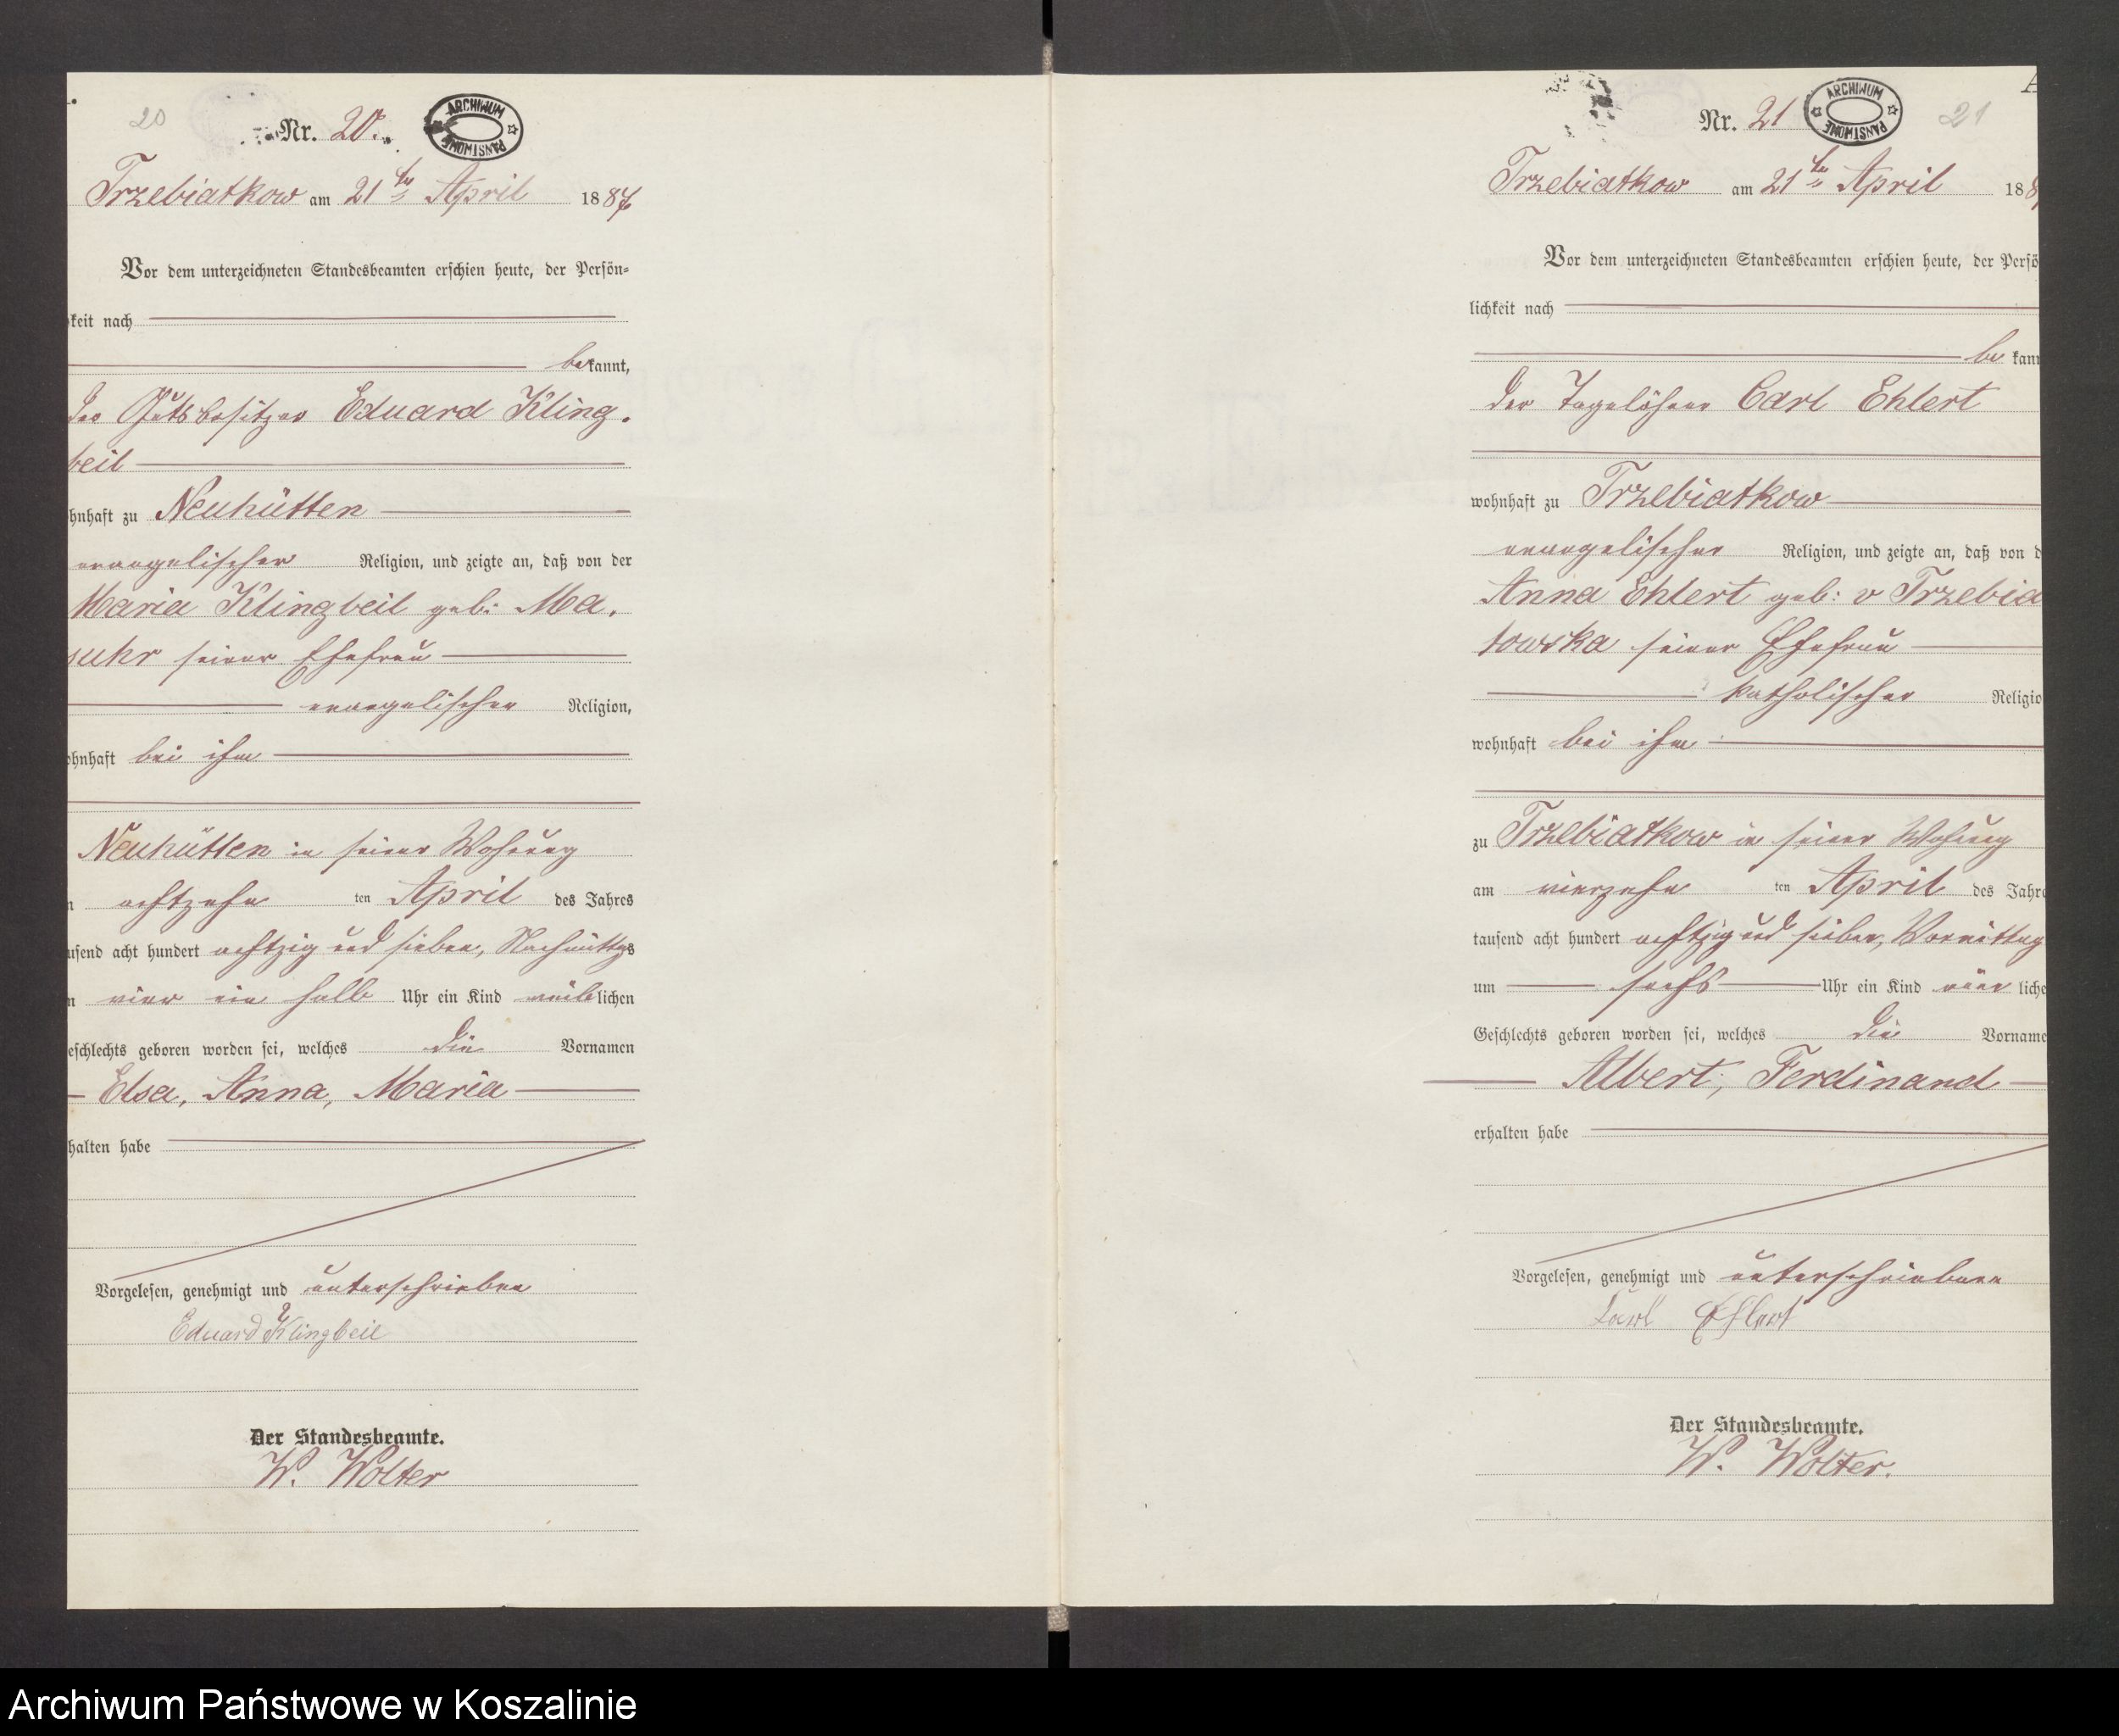 20
Nr. 20.
ARCHIWUM PAŃSTWOWE
Trzebiatkow am 21ten April 1887
Vor dem unterzeichneten Standesbeamten erschien heute, der Persön-
keit nach
bekannt,
der Gutsbesitzer Eduard Kling-
beil
hnhaft zu Neuhütten
evangelischer Religion, und zeigte an, daß von der
Maria Klingbeil geb: Ma-
suhr seiner Ehefrau
evangelischer Religion,
ohnhaft bei ihm
Neuhütten in seiner Wohnung
achtzehn ten April des Jahres
usend acht hundert achtzig und sieben, Nachmittags
vier ein halb Uhr ein Kind weiblichen
eschlechts geboren worden sei, welches die Vornamen
Elsa, Anna, Maria
halten habe
Vorgelesen, genehmigt und unterschrieben
Eduard Klingbeil
Der Standesbeamte.
W. Wolter
Nr. 21
ARCHIWUM PAŃSTWOWE
21
Trzebiatkow am 21ten April 188
Vor dem unterzeichneten Standesbeamten erschien heute, der Persö
lichkeit nach
be kann
der Tagelöhner Carl Ehlert
wohnhaft zu Trzebiatkow
evangelischer Religion, und zeigte an, daß von d
Anna Ehlert geb: v Trzebia
towska seiner Ehefrau
katholischer Religio
wohnhaft bei ihm
zu Trzebiatkow in seiner Wohnung
am vierzehn ten April des Jahre
tausend acht hundert achtzig und sieben, Vormittag
um sechs Uhr ein Kind männ liche
Geschlechts geboren worden sei, welches die Vorname
Albert, Ferdinand
erhalten habe
Vorgelesen, genehmigt und unterschrieben
Carl Ehlert
Der Standesbeamte.
W. Wolter.
Archiwum Państwowe w Koszalinie